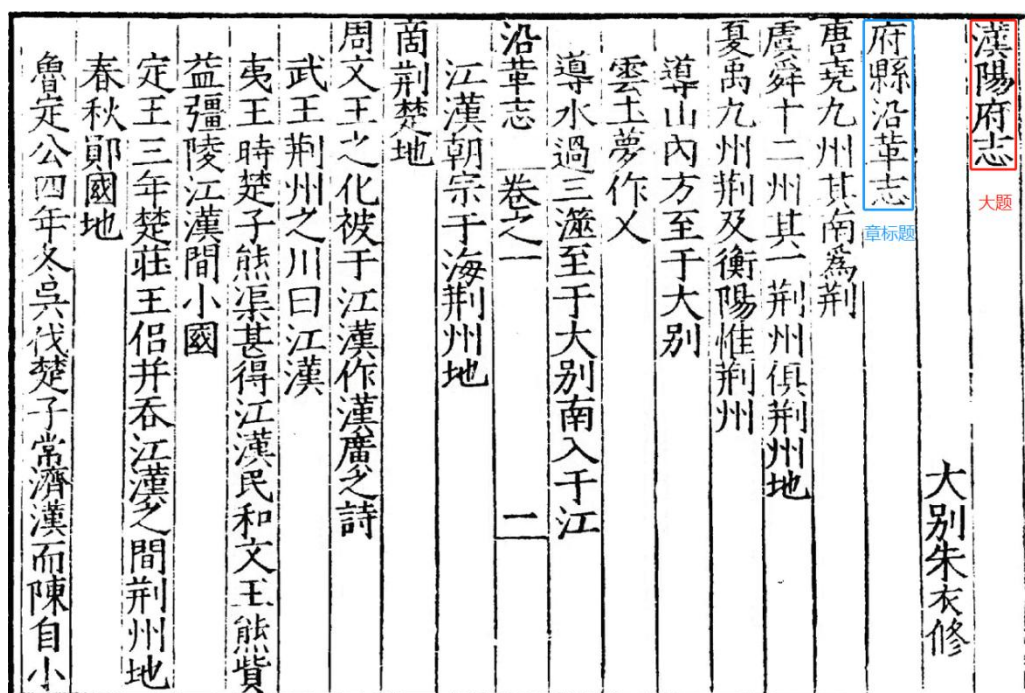 漢陽府志
大题
大别朱衣修
府縣沿革志
章标题
唐堯九州其南爲荆
虞舜十二州其一荆州俱荆州地
夏禹九州荆及衡陽惟荆州
導山內方至于大别
雲土夢作乂
導水過三澨至于大别南入于江
沿革志 卷之一 二
江漢朝宗于海荆州地
商荆楚地
周文王之化被于江漢作漢廣之詩
武王荆州之川曰江漢
夷王時楚子熊渠甚得江漢民和文王熊貲
益彊陵江漢間小國
定王三年楚莊王侣并吞江漢之間荆州地
春秋鄖國地
魯定公四年冬吳伐楚子常濟漢而陳自小